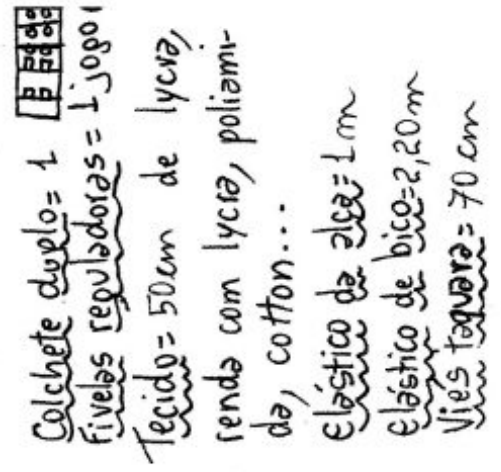 Colchete duplo= 1
Fivelas reguladoras= 1 jogo
Tecido= 50cm de lycra,
renda com lycra, poliami-
da, cotton...
Elástico da alça= 1m
Elástico de bico=2,20m
Viés taquara= 70 cm